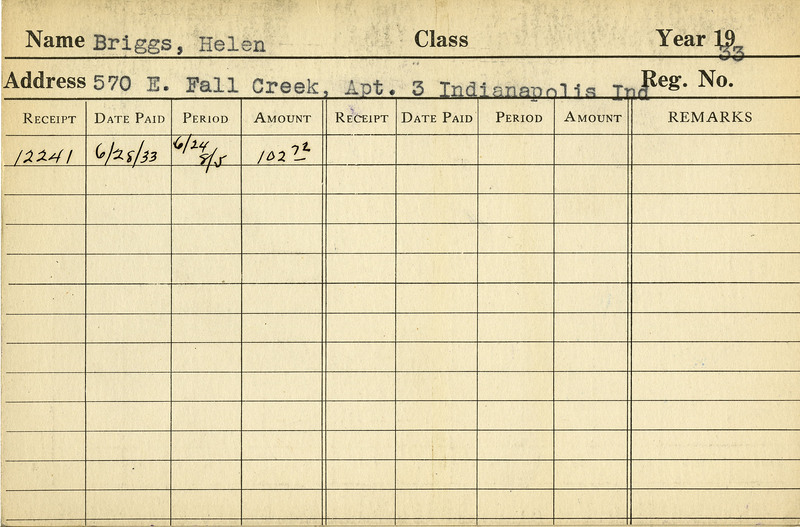 Name Briggs, Helen Class Year 1933
Address 570 E. Fall Creek, Apt. 3 Indianapolis Ind Reg. No.
RECEIPT DATE PAID PERIOD AMOUNT RECEIPT DATE PAID PERIOD AMOUNT REMARKS
12241 6/28/33 6/24 8/5 102 72